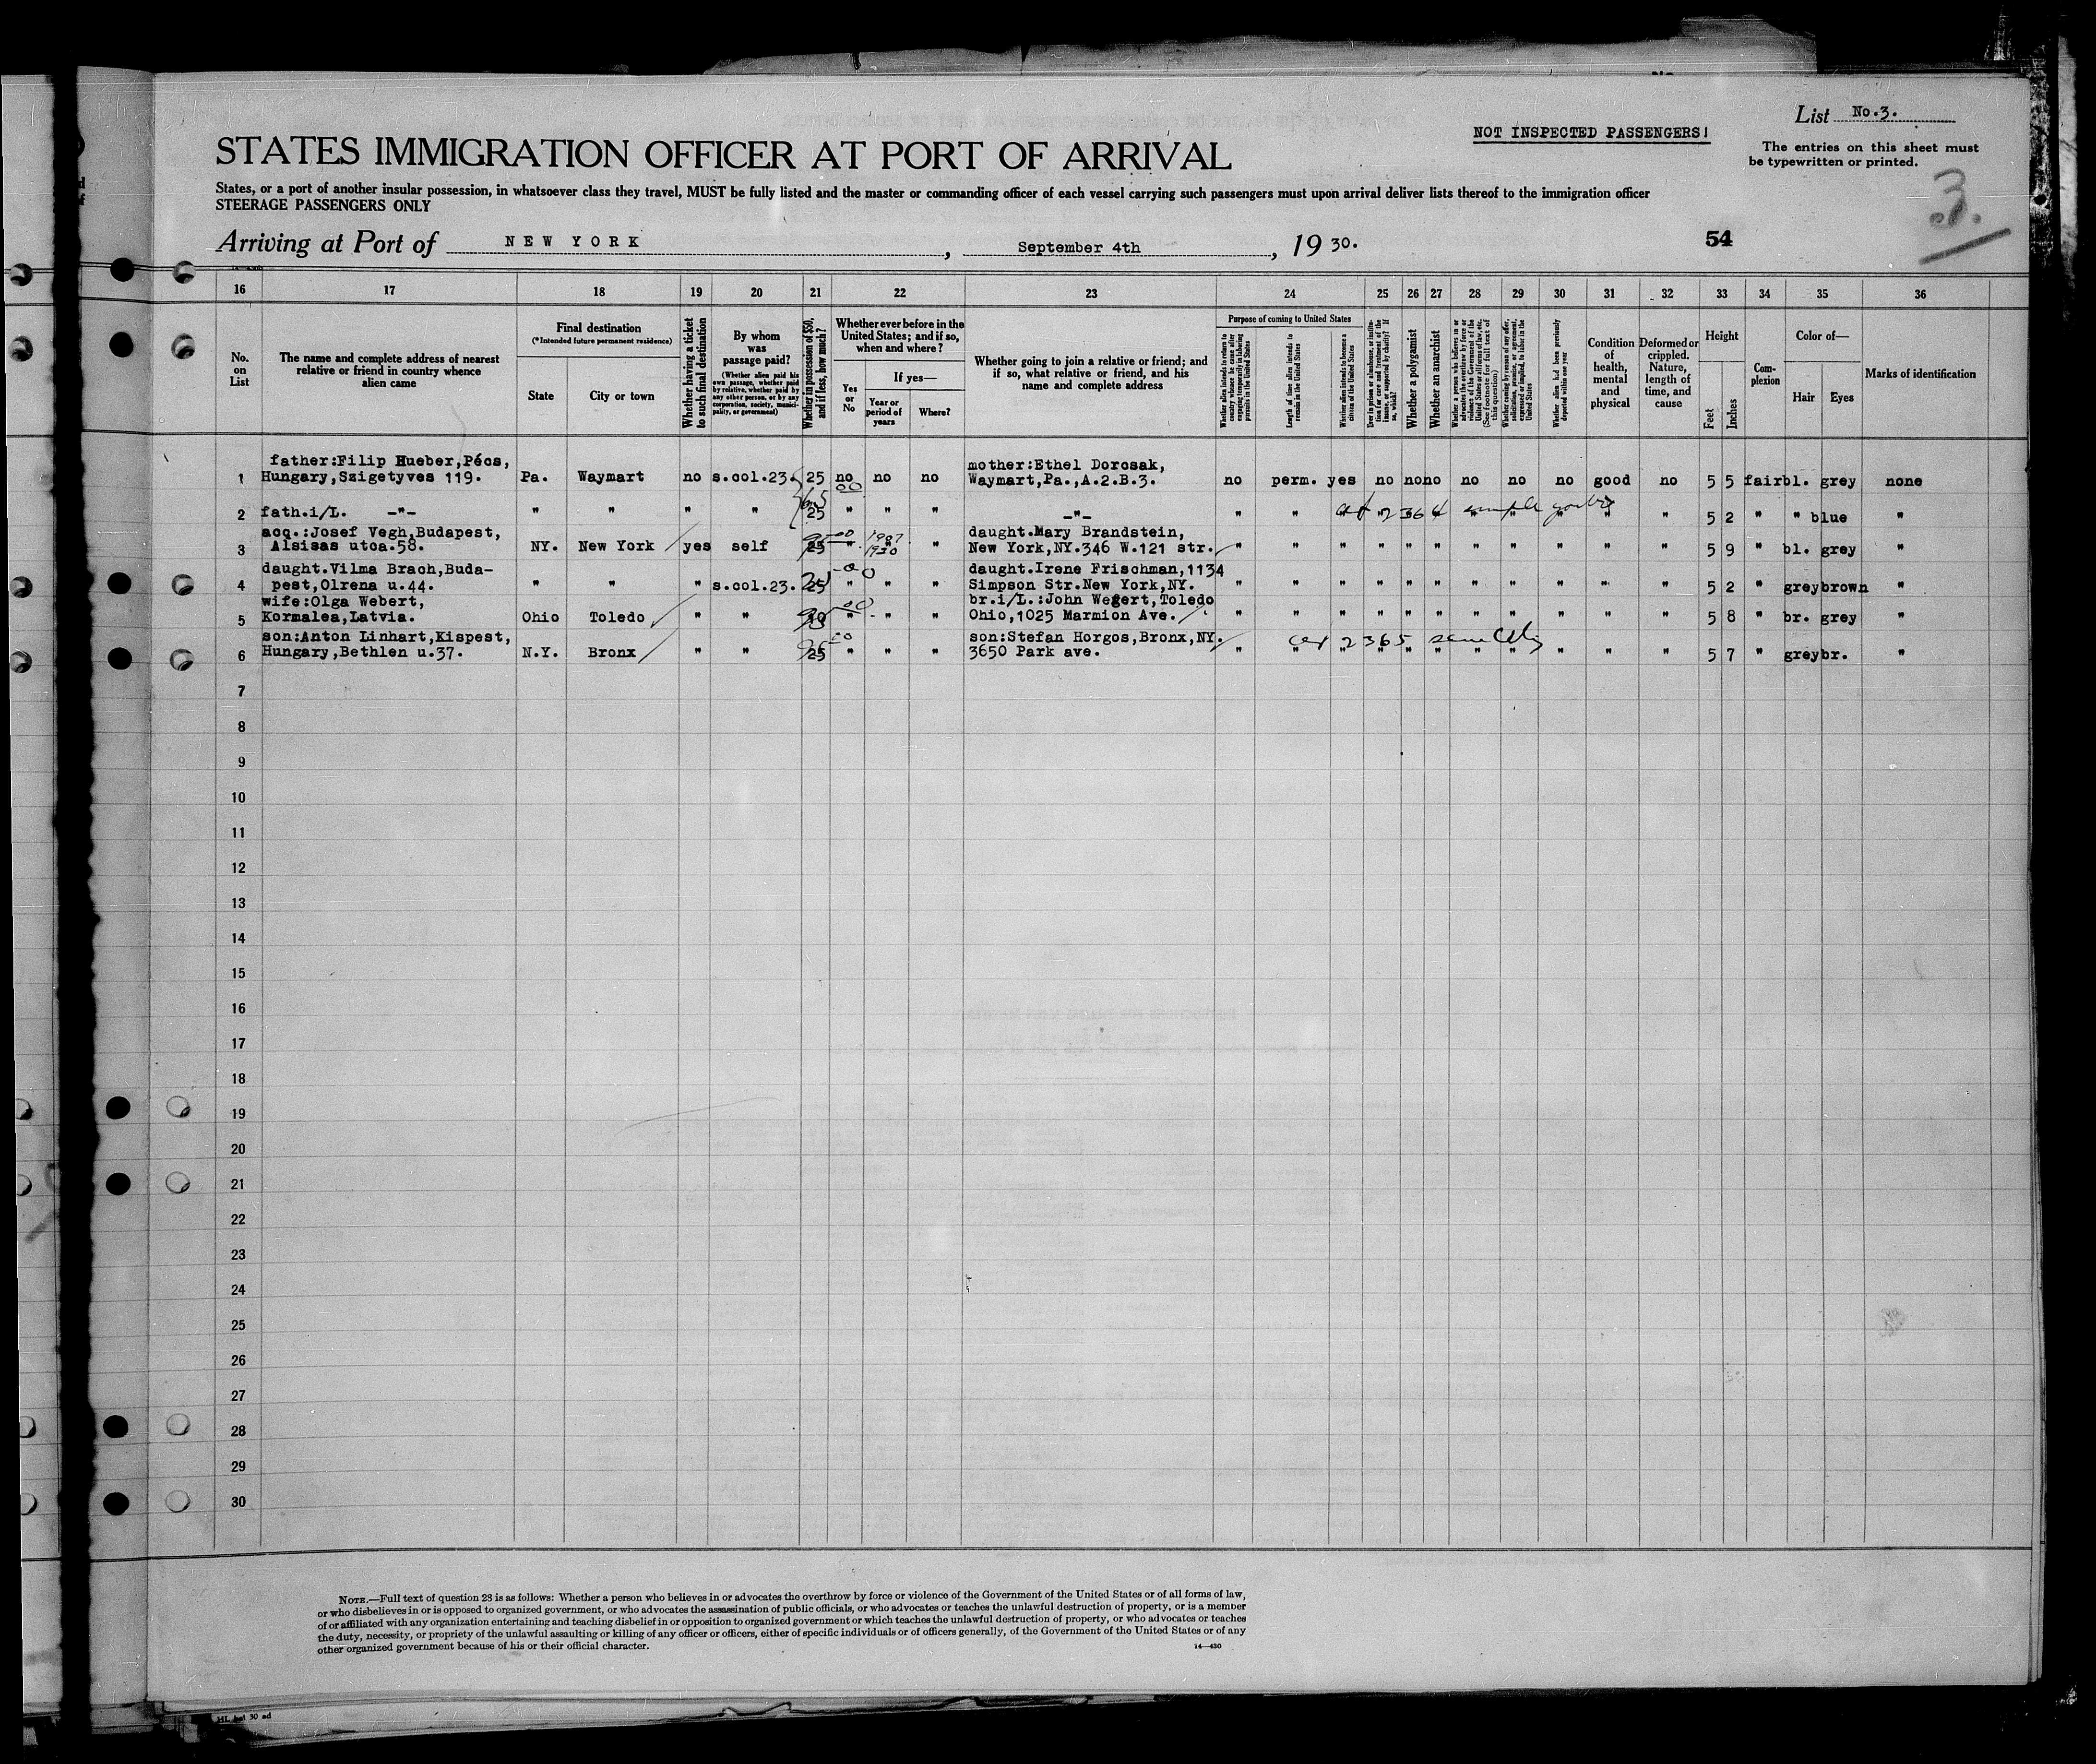 List No.3.
NOT INSPECTED PASSENGERS!
The entries on this sheet must
be typewritten or printed.
3.
STATES IMMIGRATION OFFICER AT PORT OF ARRIVAL
States, or a port of another insular possession, in whatsoever class they travel, MUST be fully listed and the master or commanding officer of each vessel carrying such passengers must upon arrival deliver lists thereof to the immigration officer
STEERAGE PASSENGERS ONLY
Arriving at Port of NEW YORK, September 4th, 1930.
54
16 17 18 19 20 21 22 23 24 25 26 27 28 29 30 31 32 33 34 35 36
No. on List
The name and complete address of nearest relative or friend in country whence alien came
Final destination
(*Intended future permanent residence)
State
City or town
Whether having a ticket to such final destination
By whom was passage paid?
(Whether alien paid his own passage, whether paid by relative, whether paid by any other person, or by any corporation, society, municipality, or government)
Whether in possession of $50, and if less, how much?
Whether ever before in the United States; and if so, when and where?
Yes or No
If yes—
Year or period of years
Where?
Whether going to join a relative or friend; and if so, what relative or friend, and his name and complete address
Purpose of coming to United States
Length of time alien intends to remain in the United States
Whether alien intends to become a citizen of the United States
Whether a polygamist
Whether an anarchist
Condition of health, mental and physical
Deformed or crippled. Nature, length of time, and cause
Height
Feet
Inches
Complexion
Color of—
Hair
Eyes
Marks of identification
father:Filip Hueber,Pécs, mother:Ethel Dorosak,
1 Hungary,Szigetyves 119. Pa. Waymart no s.col.23. 25 no no no Waymart,Pa.,A.2.B.3. no perm. yes no no no no no no good no 5 5 fair bl. grey none
2 fath.i/L. -"- " " " " 25 " " " -"- " " " " " " " " " " " 5 2 " " blue "
acq.:Josef Vegh,Budapest, 1907 daught.Mary Brandstein,
3 Alsisas utca.58. NY. New York yes self 25 " 1930 " New York,NY.346 W.121 str. " " " " " " " " " " " 5 9 " bl. grey "
daught.Vilma Brach,Buda- daught.Irene Frischman,1134
4 pest,Olrena u.44. " " " s.col.23. 25 " " " Simpson Str.New York,NY. " " " " " " " " " " " 5 2 " grey brown "
wife:Olga Webert, br.i/L.:John Wegert,Toledo
5 Kormalea,Latvia. Ohio Toledo " " " " " Ohio,1025 Marmion Ave. " " " " " " " " " " " 5 8 " br. grey "
son:Anton Linhart,Kispest, son:Stefan Horgos,Bronx,NY.
6 Hungary,Bethlen u.37. N.Y. Bronx " " 25 " " " 3650 Park ave. " " " " " " " " " " " 5 7 " grey br. "
7
8
9
10
11
12
13
14
15
16
17
18
19
20
21
22
23
24
25
26
27
28
29
30
NOTE.—Full text of question 28 is as follows: Whether a person who believes in or advocates the overthrow by force or violence of the Government of the United States or of all forms of law,
or who disbelieves in or is opposed to organized government, or who advocates the assassination of public officials, or who advocates or teaches the unlawful destruction of property, or is a member
of or affiliated with any organization entertaining and teaching disbelief in or opposition to organized government or which teaches the unlawful destruction of property, or who advocates or teaches
the duty, necessity, or propriety of the unlawful assaulting or killing of any officer or officers, either of specific individuals or of officers generally, of the Government of the United States or of any
other organized government because of his or their official character.
14—430